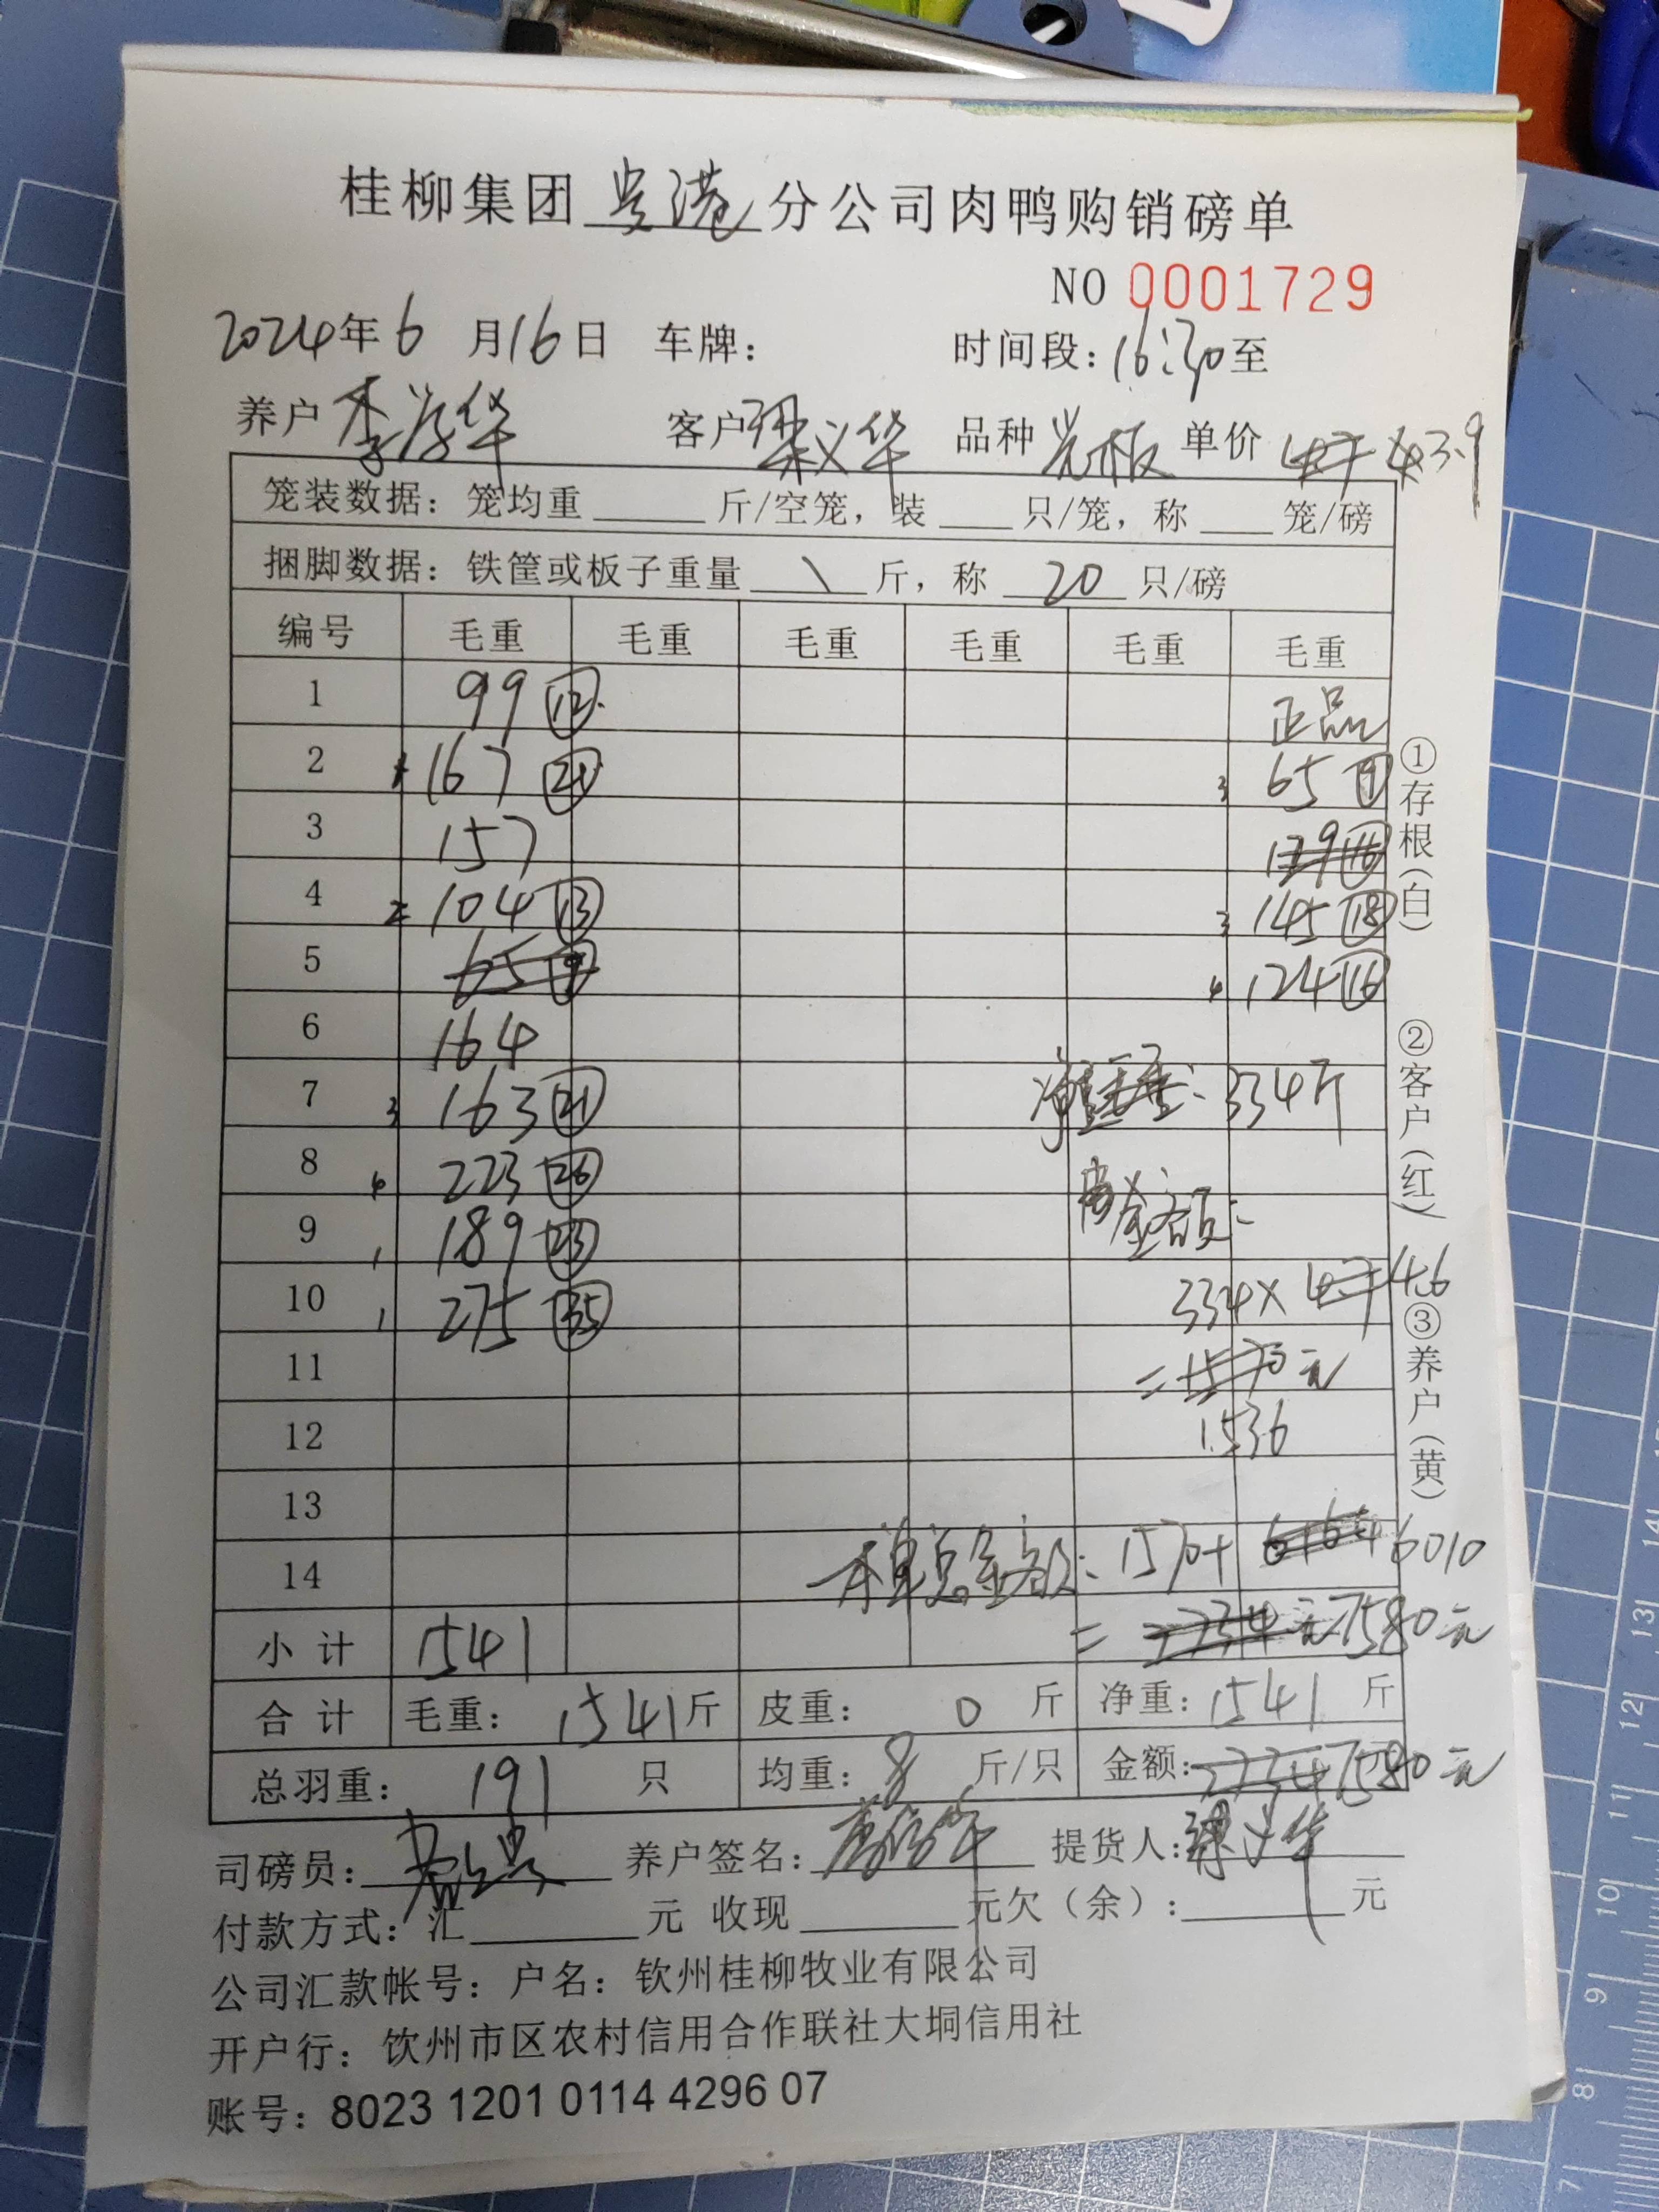 桂柳集团贵港分公司肉鸭购销磅单
NO 0001729
2024年6月16日 车牌: 时间段:16:30至
养户 客户梁义华 品种光板 单价 3.9
笼装数据: 笼均重 斤/空笼, 装 只/笼, 称 笼/磅
捆脚数据: 铁筐或板子重量 \ 斤, 称 20 只/磅
编号 毛重 毛重 毛重 毛重 毛重 毛重
1 99 ⑫ 正品
2 167 ㉑ 3 65 ⑨
3 157 139 ⑯
4 2 104 ⑬ 3 145 ⑱
5 65 ⑨ 4 124 ⑯
6 164
7 3 163 ㉑ 334斤
8 4 223 ㉖
9 1 189 ㉓ 金额:
10 1 275 ㉟ 334× 4.6
11 =1570元
12 1536
13
14 本单总金额: 1570+ 6164 6010
小计 1541 = 7734元 7580元
合计 毛重: 1541斤 皮重: 0 斤 净重: 1541 斤
总羽重: 191 只 均重: 8 斤/只 金额: 7734 7580元
司磅员: 养户签名: 提货人: 梁义华
付款方式: 汇 元 收现 元欠(余): 元
公司汇款帐号: 户名: 钦州桂柳牧业有限公司
开户行: 钦州市区农村信用合作联社大垌信用社
账号: 8023 1201 0114 4296 07
①存根(白)
②客户(红)
③养户(黄)
15
14
13
12
11
10
9
8
7